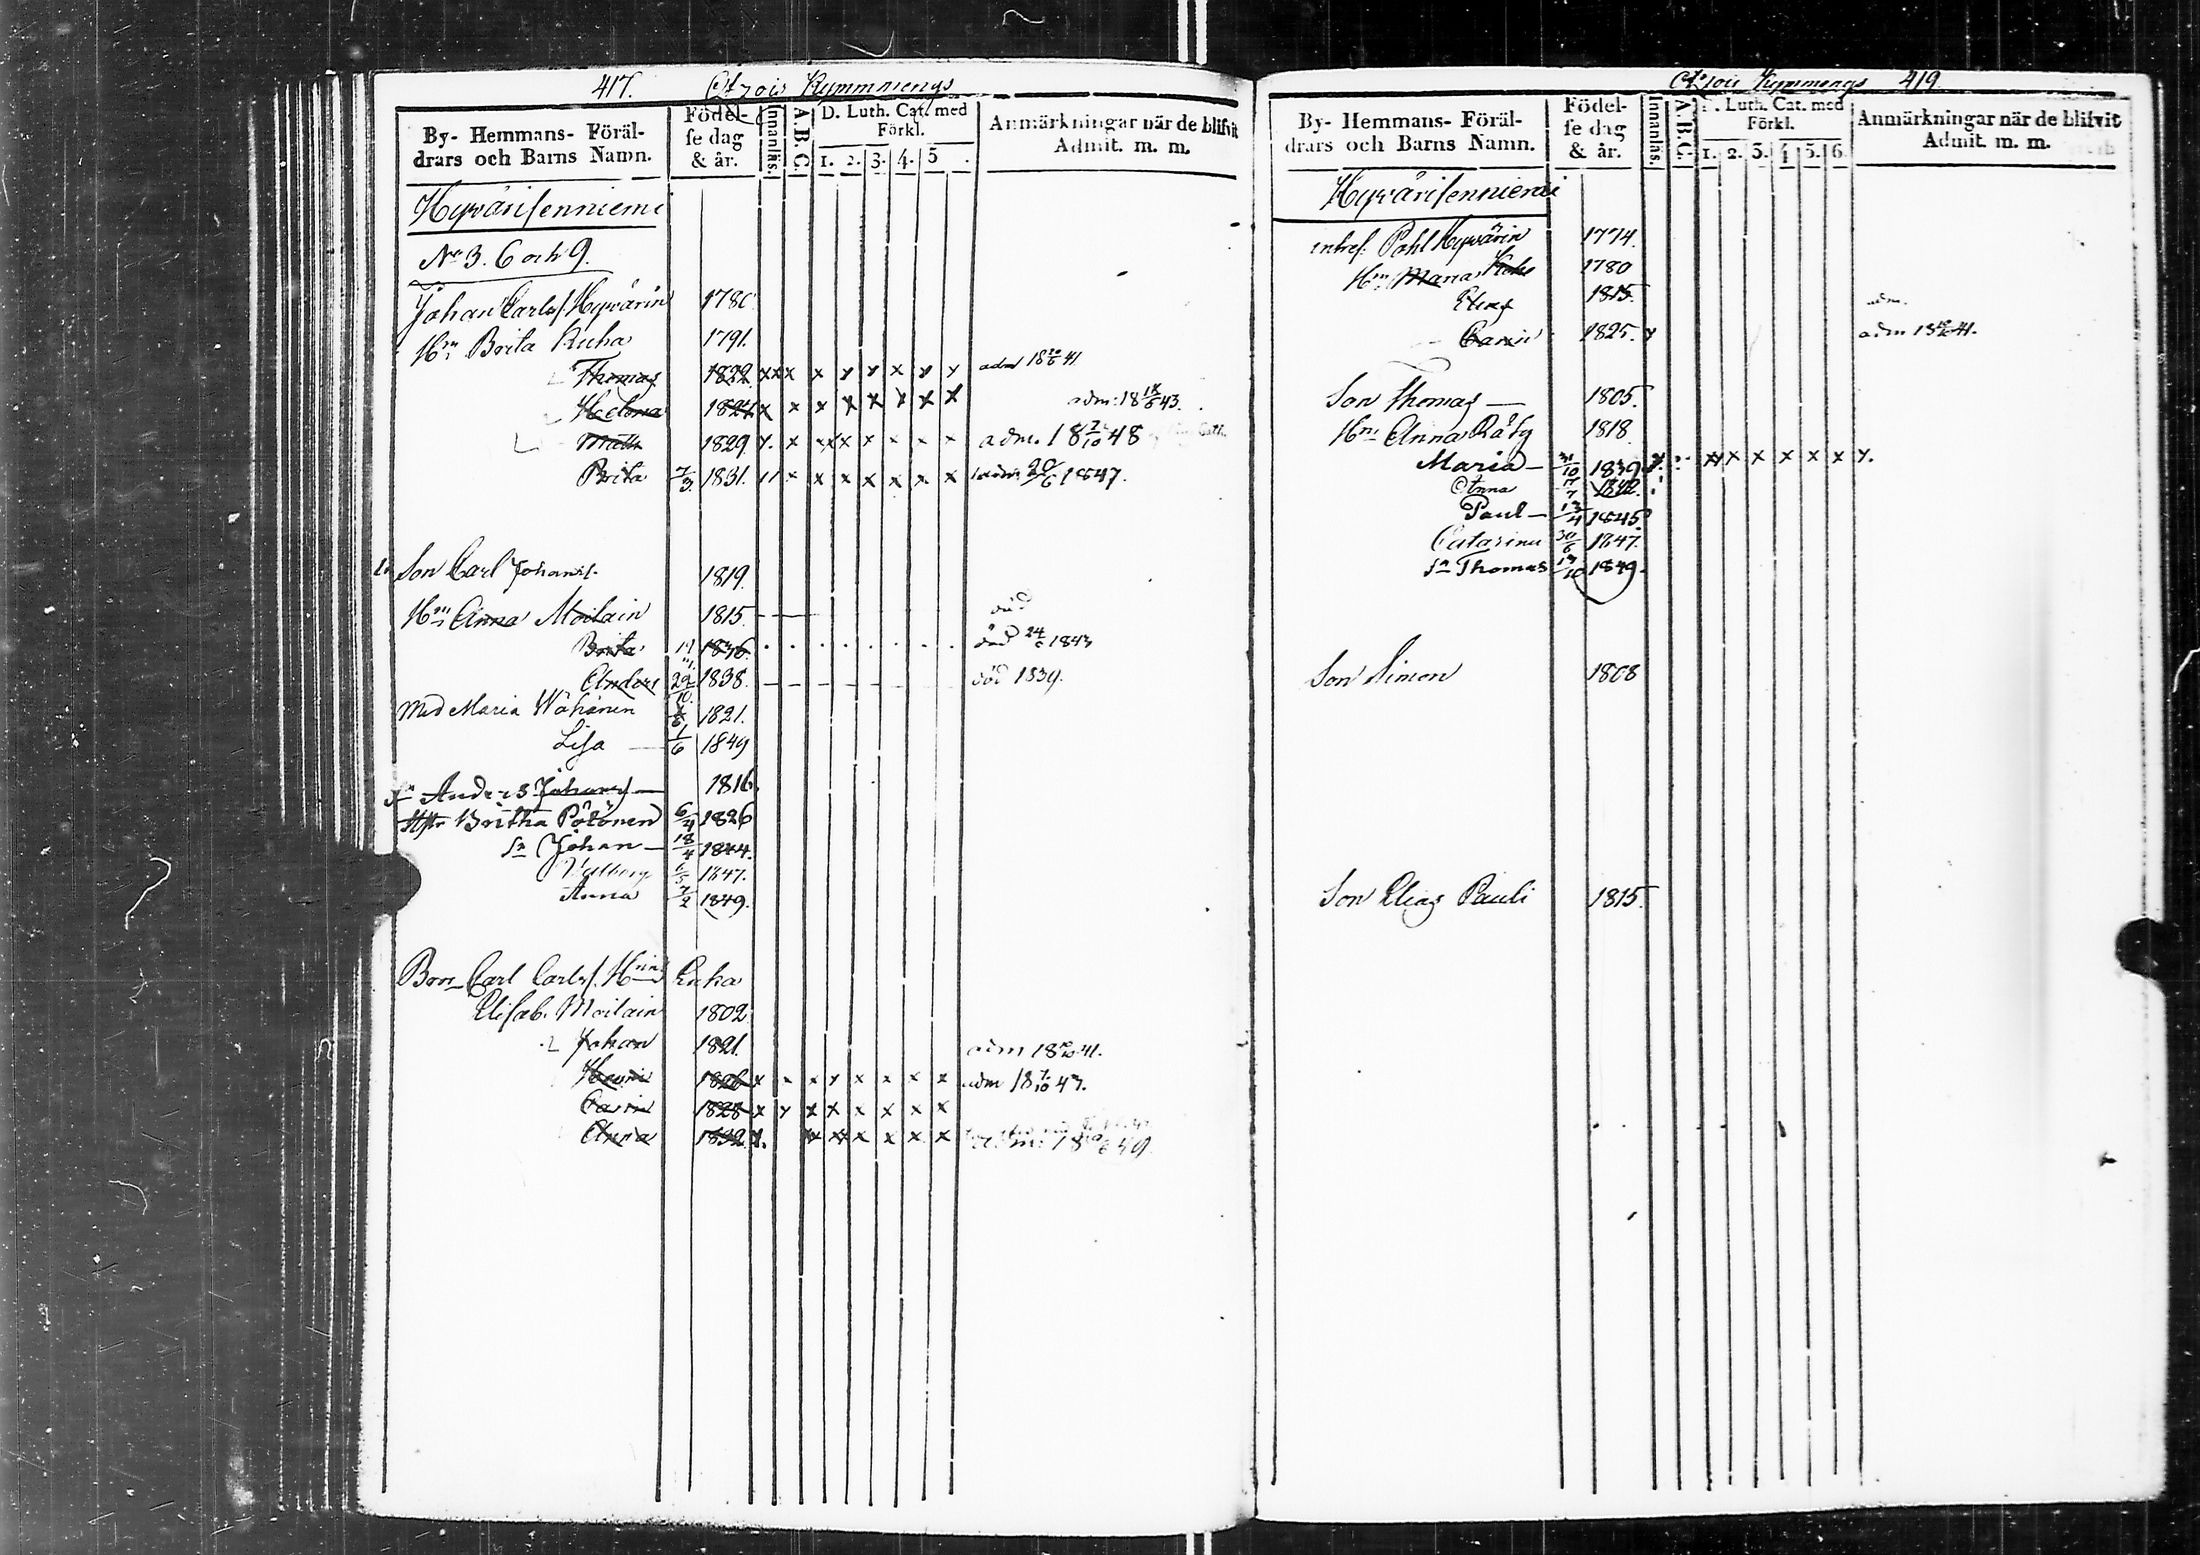 417.
Kymmnengs
By- Hemmans- Föräl-
drars och Barns Namn.
Födel-
se dag
& år.
Innanläs.
A.B.C.
D. Luth. Cat. med
Förkl.
1. 2. 3. 4. 5
Anmärkningar när de blifvit
Admit. m. m.
Hyvärisenniemi
No 3. 6 och 9.
Johan Carlss. Hyvärin 1780.
Hu Brita Kuha 1791.
Thomas 1822 xxx x y y x y y adm 18 41
Helena 1824 x x x x x x x x adm: 18 43.
Matts 1829 y. x xxx x x x x adm. 18 7/10 48
Brita 7/3 1831. x x x x x x x adm: 20/6 1847.
Son Carl Johans. 1819.
Hu Anna Moilain 1815 död
Brita 1836. död 1843
Anders 29/10 1838. död 1839.
Med Maria Wähänen 1821.
Lisa 1/6 1849
Anders Johans 1816.
Hstr Britha Pötönen 6/4 1826
Sn Johan 18/4 1844.
Walborg 1847.
Anna 7/2 1849.
Bror Carl Carlss. Kuha
Elisab. Moilain 1802
Johan 1821. adm 18 41.
1826 x x x y x x x x adm 18 7/10 47.
Carin 1828 x y x x x x x x
Anna 1832 x. x x x x x x adm: 18 49.
Kymmengs 419
By- Hemmans- Föräl-
drars och Barns Namn.
Födel-
se dag
& år.
Innanläs.
A.B.C.
D. Luth. Cat. med
Förkl.
1. 2. 3. 4 5. 6
Anmärkningar när de blifvit
Admit. m. m.
Hyvärisenniemi
inhes. Pahl Hyvärin 1774.
Hu Maria 1780
Elias 1815. adm.
Carin 1825. y adm 18 41.
Son Thomas 1805.
Hu Anna Räty 1818
Maria 31/10 1839 y. x x x x x x y.
Anna 17/7 1842.
Paul 13/4 1845
Catarina 30/6 1847.
Sn Thomas 1849.
Son Simon 1808
Son Elias Pauli 1815.